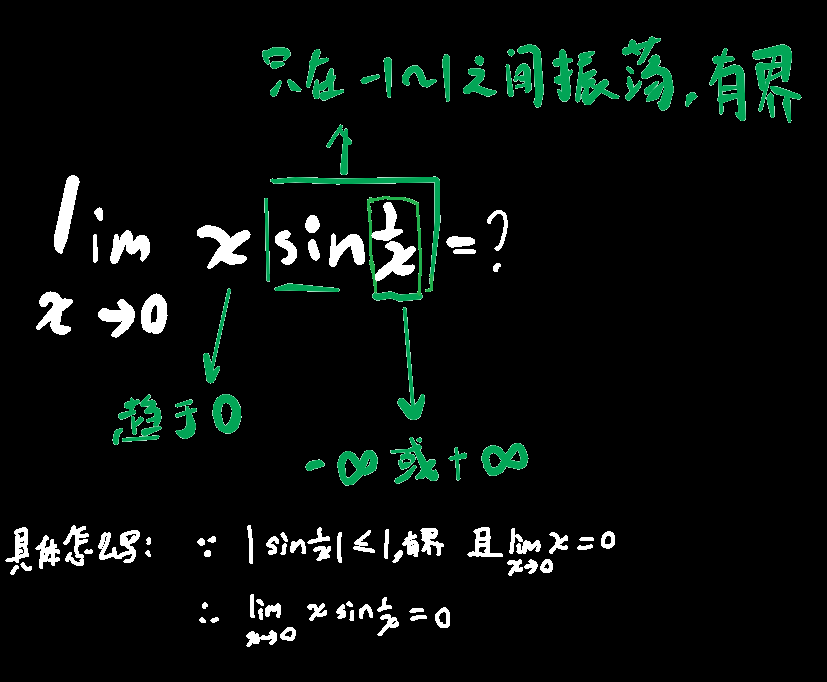 只在 -1~1 之间振荡,有界
lim x sin 1/x = ?
x→0
趋于0
-∞ 或 +∞
具体怎么写: ∵ |sin 1/x| ≤ 1,有界 且 lim x = 0
x→0
∴ lim x sin 1/x = 0
x→0